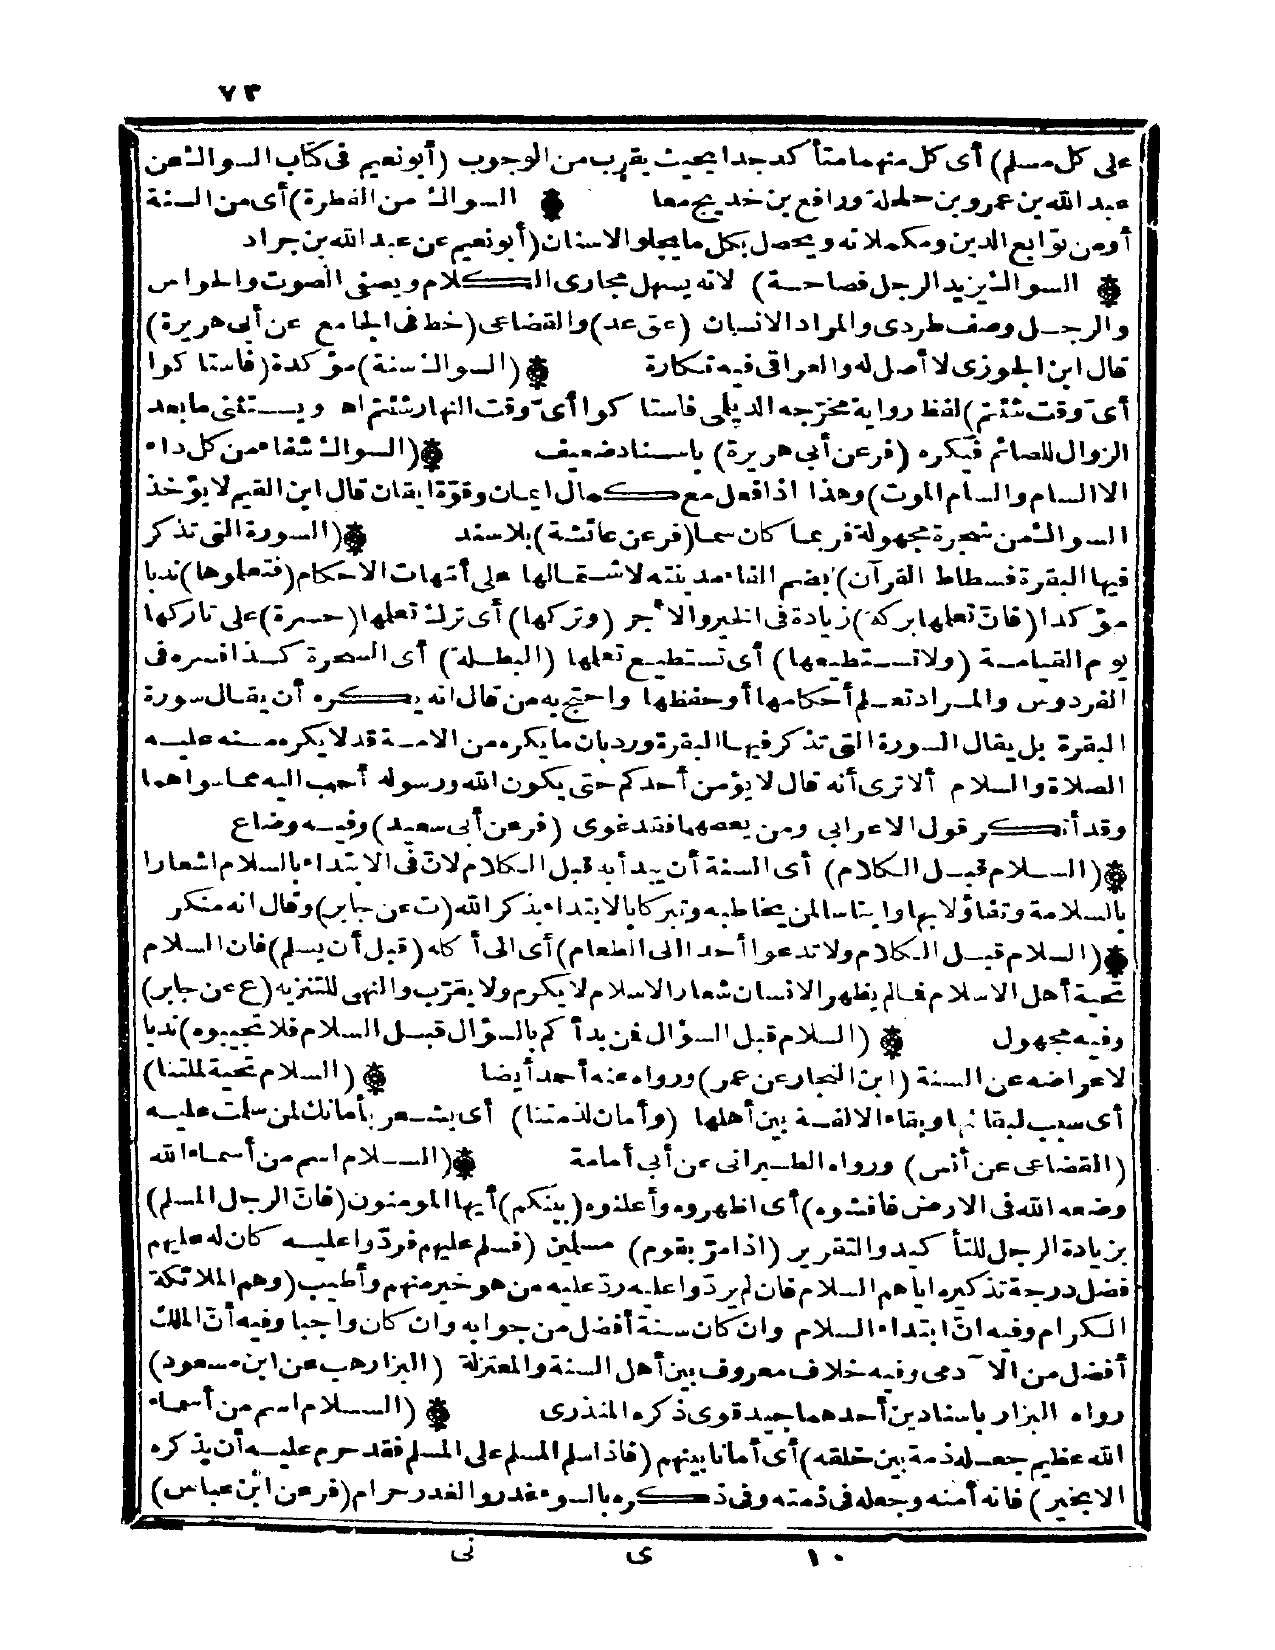 ٧٣
على كل مسلم) أى كل منهما متأكد جدا بحيث يقرب من الوجوب (أبو نعيم فى كتاب السواك عن
عبد الله بن عمرو بن حلحلة ورافع بن خديج معا السواك من الفطرة) أى من السنة
أو من توابع الدين ومكملاته ويحصل بكل ما يجلو الاسنان (أبو نعيم عن عبد الله بن جراد
السواك يزيد الرجل فصاحة) لانه يسهل مجارى الكلام ويصفى الصوت والحواس
والرجل وصف طردى والمراد الانسان (عق عد) والقضاعى (خط فى الجامع عن أبى هريرة)
قال ابن الجوزى لا أصل له والعراقى فيه نكارة (السواك سنة) مؤكدة (فاستاكوا
أىّ وقت شئتم) لفظ رواية مخرّجه الديلى فاستاكوا أىّ وقت النهار شئتم اه ويستثنى ما بعد
الزوال للصائم فيكره (فر عن أبى هريرة) باسناد ضعيف (السواك شفاء من كل داء
الا السام والسام الموت) وهذا اذا فعل مع كمال ايمان وقوّة ايقان قال ابن القيم لا يؤخذ
السواك من شجرة مجهولة فربما كان سما (فر عن عائشة) بلا سند (السورة التى تذكر
فيها البقرة فسطاط القرآن) بضم الفاء مدينته لاشتمالها على أمّهات الاحكام (فتعلموها) ندبا
مؤكدا (فانّ تعلمها بركة) زيادة فى الخير والاجر (وتركها) أى ترك تعلمها (حسرة) على تاركها
يوم القيامة (ولا تستطيعها) أى تستطيع تعلمها (البطلة) أى السحرة كذا فسره فى
الفردوس والمراد تعلم أحكامها أو حفظها واحتج به من قال انه يكره أن يقال سورة
البقرة بل يقال السورة التى تذكر فيها البقرة ورد بان ما يكره من الامة قد لا يكره منه عليه
الصلاة والسلام ألا ترى أنه قال لا يؤمن أحدكم حتى يكون الله ورسوله أحب اليه مما سواهما
وقد أنكر قول الاعرابى ومن يعصهما فقد غوى (فر عن أبى سعيد) وفيه وضاع
(السلام قبل الكلام) أى السنة أن يبدأ به قبل الكلام لانّ فى الابتداء بالسلام اشعارا
بالسلامة وتفاؤلا بها وايناسا لمن يخاطبه وتبركا بالابتداء بذكر الله (ت عن جابر) وقال انه منكر
(السلام قبل الكلام ولا تدعوا أحدا الى الطعام) أى الى أكله (قبل أن يسلم) فان السلام
تحية أهل الاسلام فما لم يظهر الانسان شعار الاسلام لا يكرم ولا يقرّب والنهى للتنزيه (ع عن جابر)
وفيه مجهول (السلام قبل السؤال فمن بدأكم بالسؤال قبل السلام فلا تجيبوه) ندبا
لاعراضه عن السنة (ابن النجار عن عمر) ورواه عنه أحمد أيضا (السلام تحية لملتنا)
أى سبب لبقائها وبقاء الالفة بين أهلها (وأمان لذمتنا) أى يشعر بأمانك لمن سلمت عليه
(القضاعى عن أنس) ورواه الطبرانى عن أبى أمامة (السلام اسم من أسماء الله
وضعه الله فى الارض فافشوه) أى اظهروه وأعلنوه (بينكم) أيها المؤمنون (فانّ الرجل المسلم)
بزيادة الرجل للتأكيد والتقرير (اذا مرّ بقوم) مسلمين (فسلم عليهم فردّوا عليه كان له عليهم
فضل درجة تذكيره اياهم السلام فان لم يردّوا عليه ردّ عليه من هو خير منهم وأطيب) وهم الملائكة
الكرام وفيه انّ ابتداء السلام وان كان سنة أفضل من جوابه وان كان واجبا وفيه أنّ الملك
أفضل من الآدمى وفيه خلاف معروف بين أهل السنة والمعتزلة (البزار هب عن ابن مسعود)
رواه البزار باسنادين أحدهما جيد قوى ذكره المنذرى (السلام اسم من أسماء
الله عظيم جعله ذمة بين خلقه) أى أمانا بينهم (فاذا سلم المسلم على المسلم فقد حرم عليه أن يذكره
الا بخير) فانه أمنه وجعله فى ذمته وفى ذكره بالسوء غدر والغدر حرام (فر عن ابن عباس)
١٠ ى نى